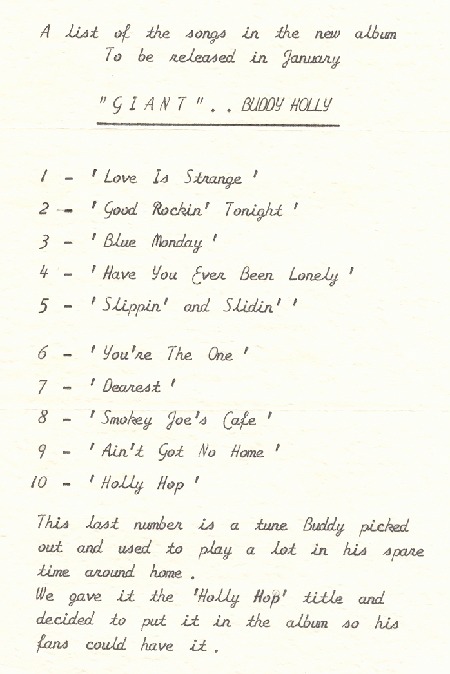 A list of the songs in the new album
To be released in January
"G I A N T" . . BUDDY HOLLY
1 - 'Love Is Strange'
2 - 'Good Rockin' Tonight'
3 - 'Blue Monday'
4 - 'Have You Ever Been Lonely'
5 - 'Slippin' and Slidin''
6 - 'You're The One'
7 - 'Dearest'
8 - 'Smokey Joe's Cafe'
9 - 'Ain't Got No Home'
10 - 'Holly Hop'
This last number is a tune Buddy picked
out and used to play a lot in his spare
time around home.
We gave it the 'Holly Hop' title and
decided to put it in the album so his
fans could have it.